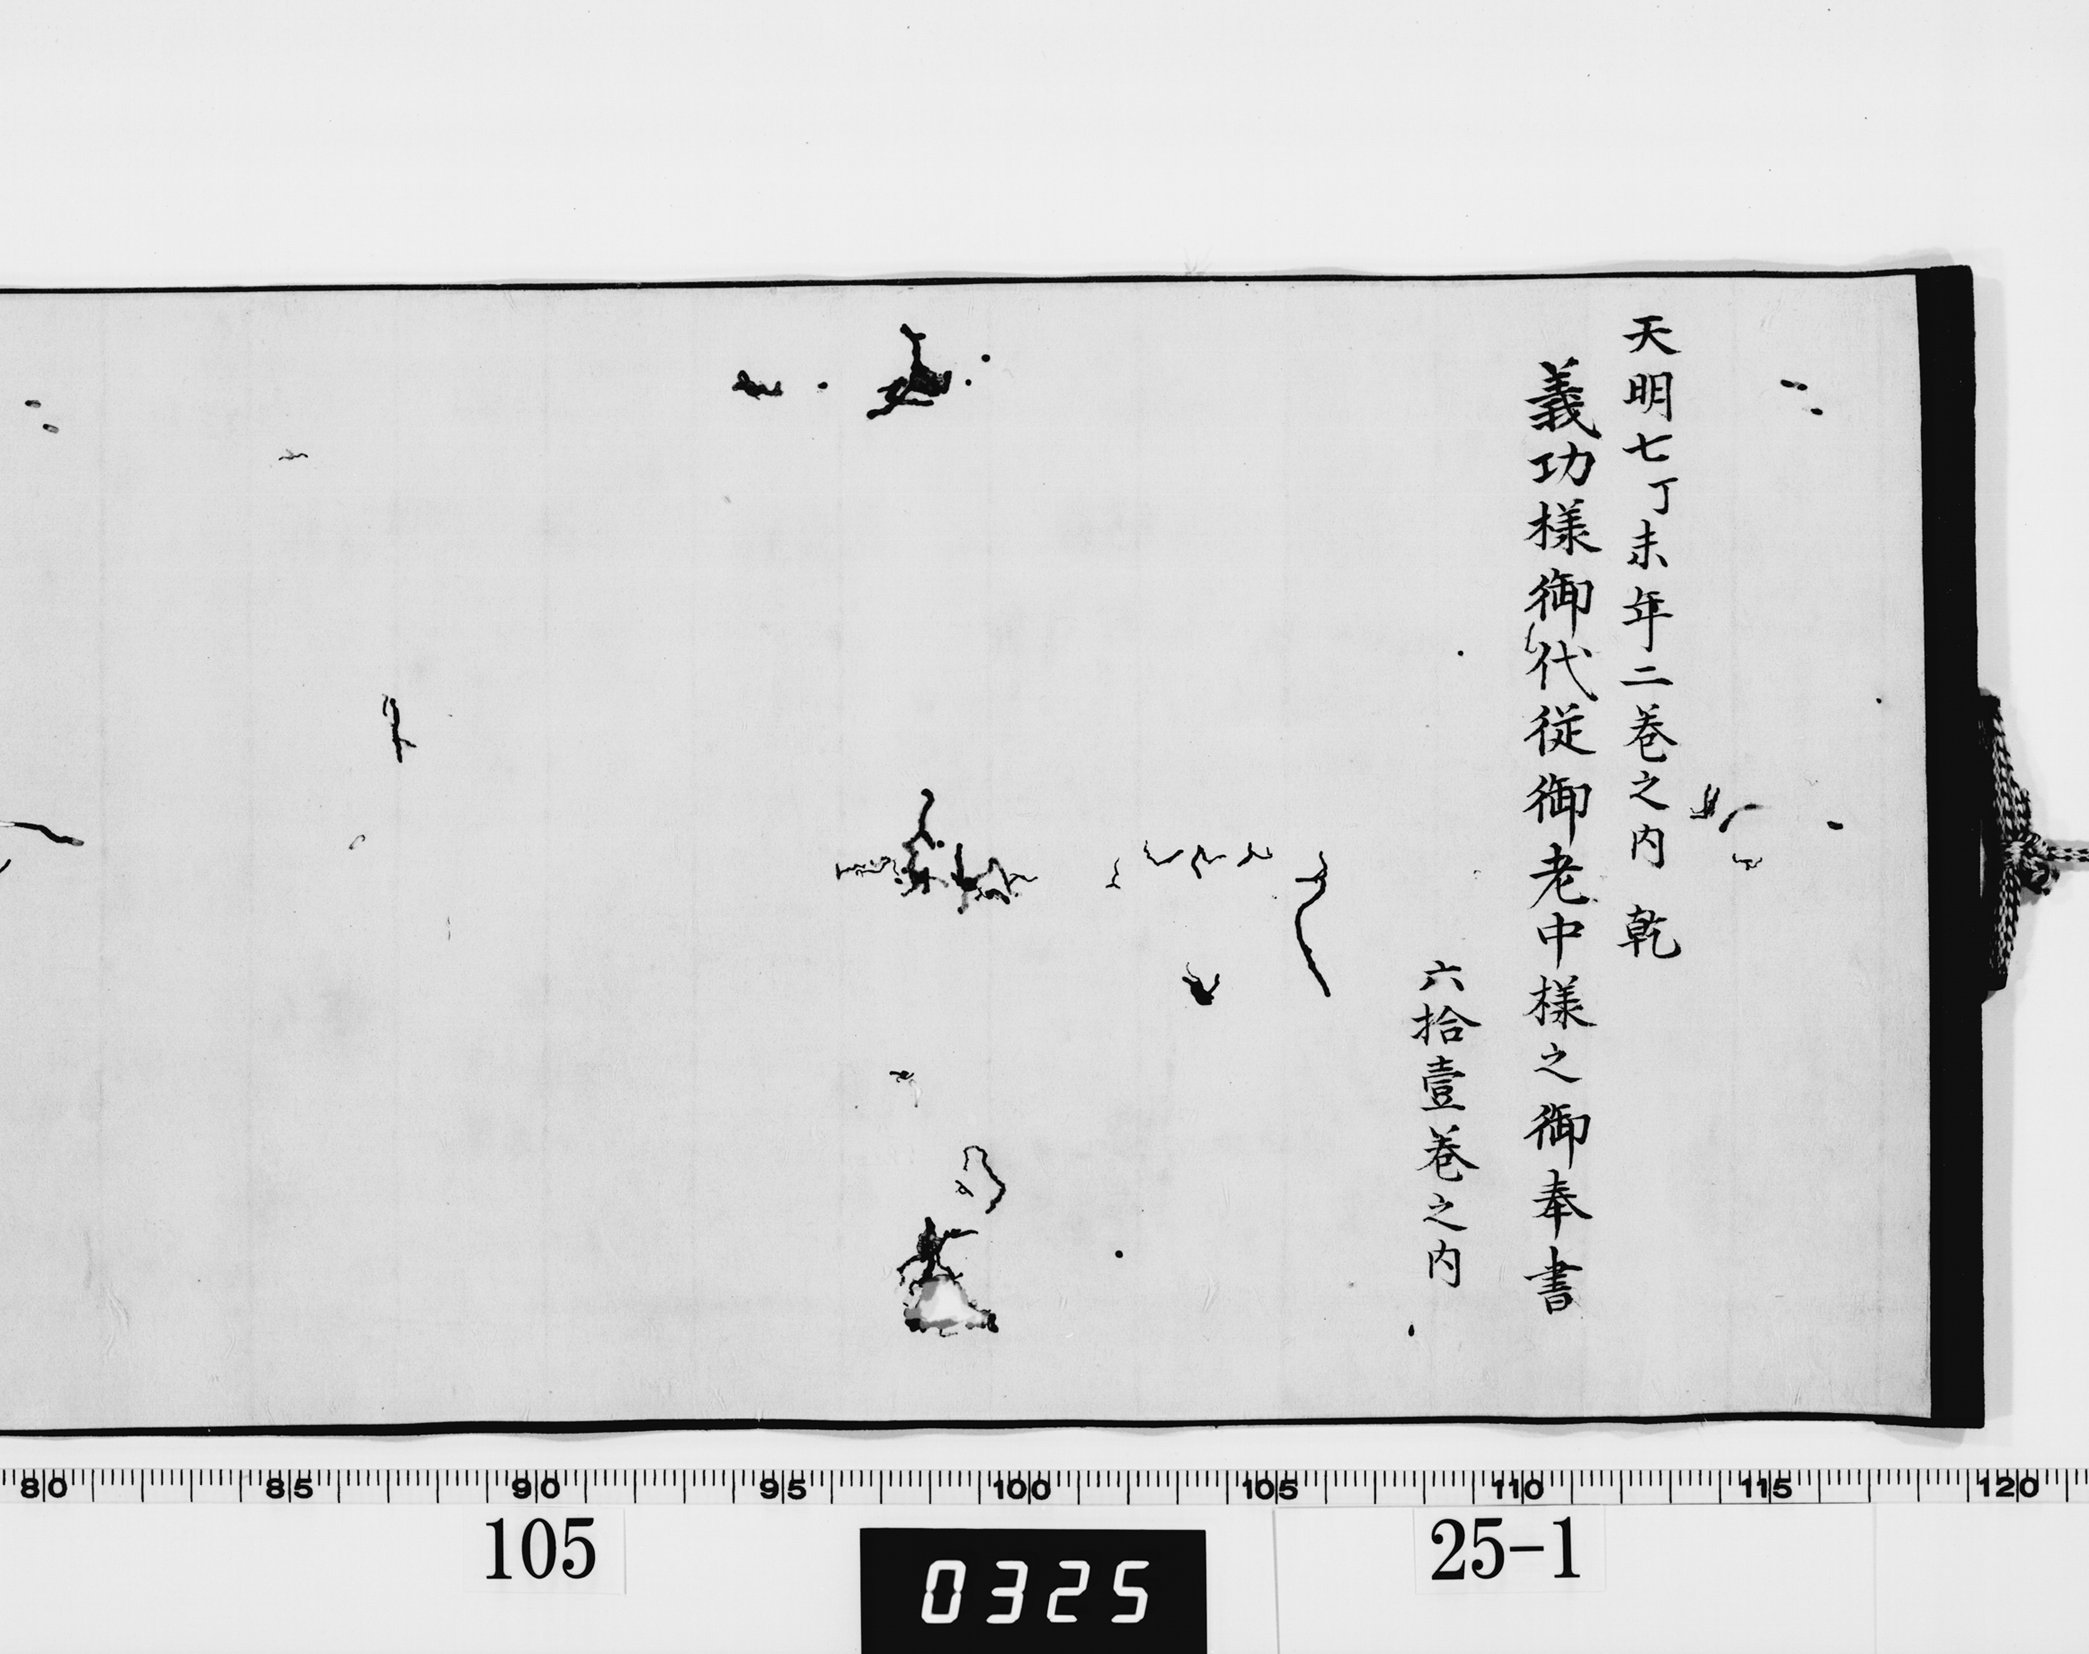 天明七丁未年二巻之内　乾
義功様御代従御老中様之御奉書
六拾壹巻之内
80 85 90 95 100 105 110 115 120
105
0325
25-1